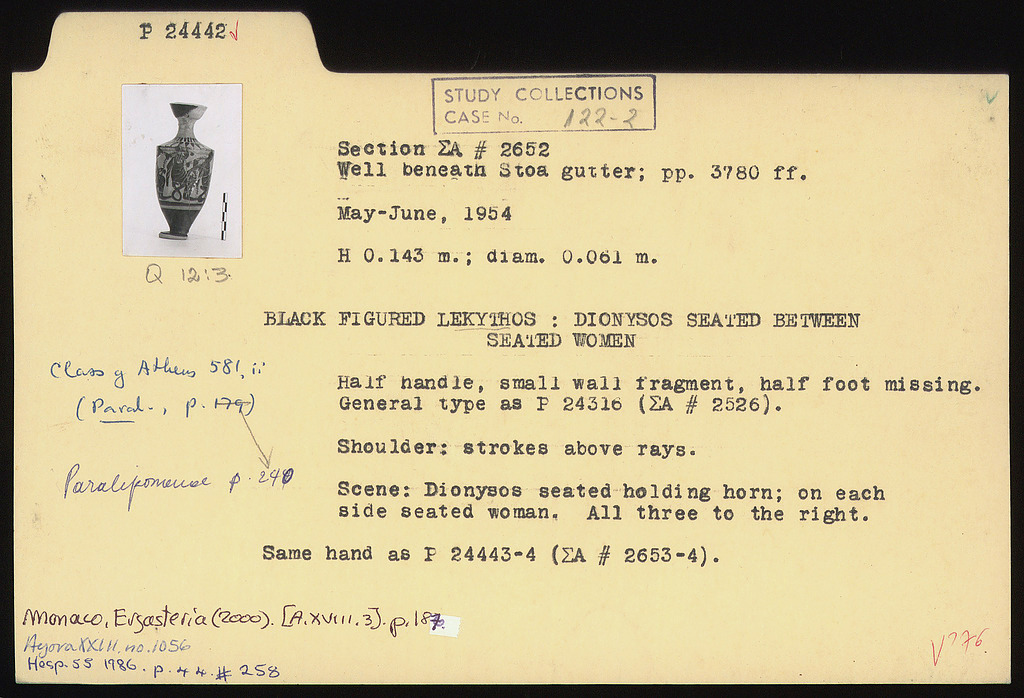 P 24442 ✓
STUDY COLLECTIONS
CASE No. 122-2
Section ΣA # 2652
Well beneath Stoa gutter; pp. 3780 ff.
May-June, 1954
H 0.143 m.; diam. 0.061 m.
Q 12:3
BLACK FIGURED LEKYTHOS : DIONYSOS SEATED BETWEEN
SEATED WOMEN
Class of Athens 581, ii
(Paral., p. 179)
Paralipomenae p. 240
Half handle, small wall fragment, half foot missing.
General type as P 24316 (ΣA # 2526).
Shoulder: strokes above rays.
Scene: Dionysos seated holding horn; on each
side seated woman. All three to the right.
Same hand as P 24443-4 (ΣA # 2653-4).
Monaco, Ergasteria (2000). [A.XVIII.3]. p. 187
Agora XXIII, no. 1056
Hesp. 55 1986. p. 44 # 258